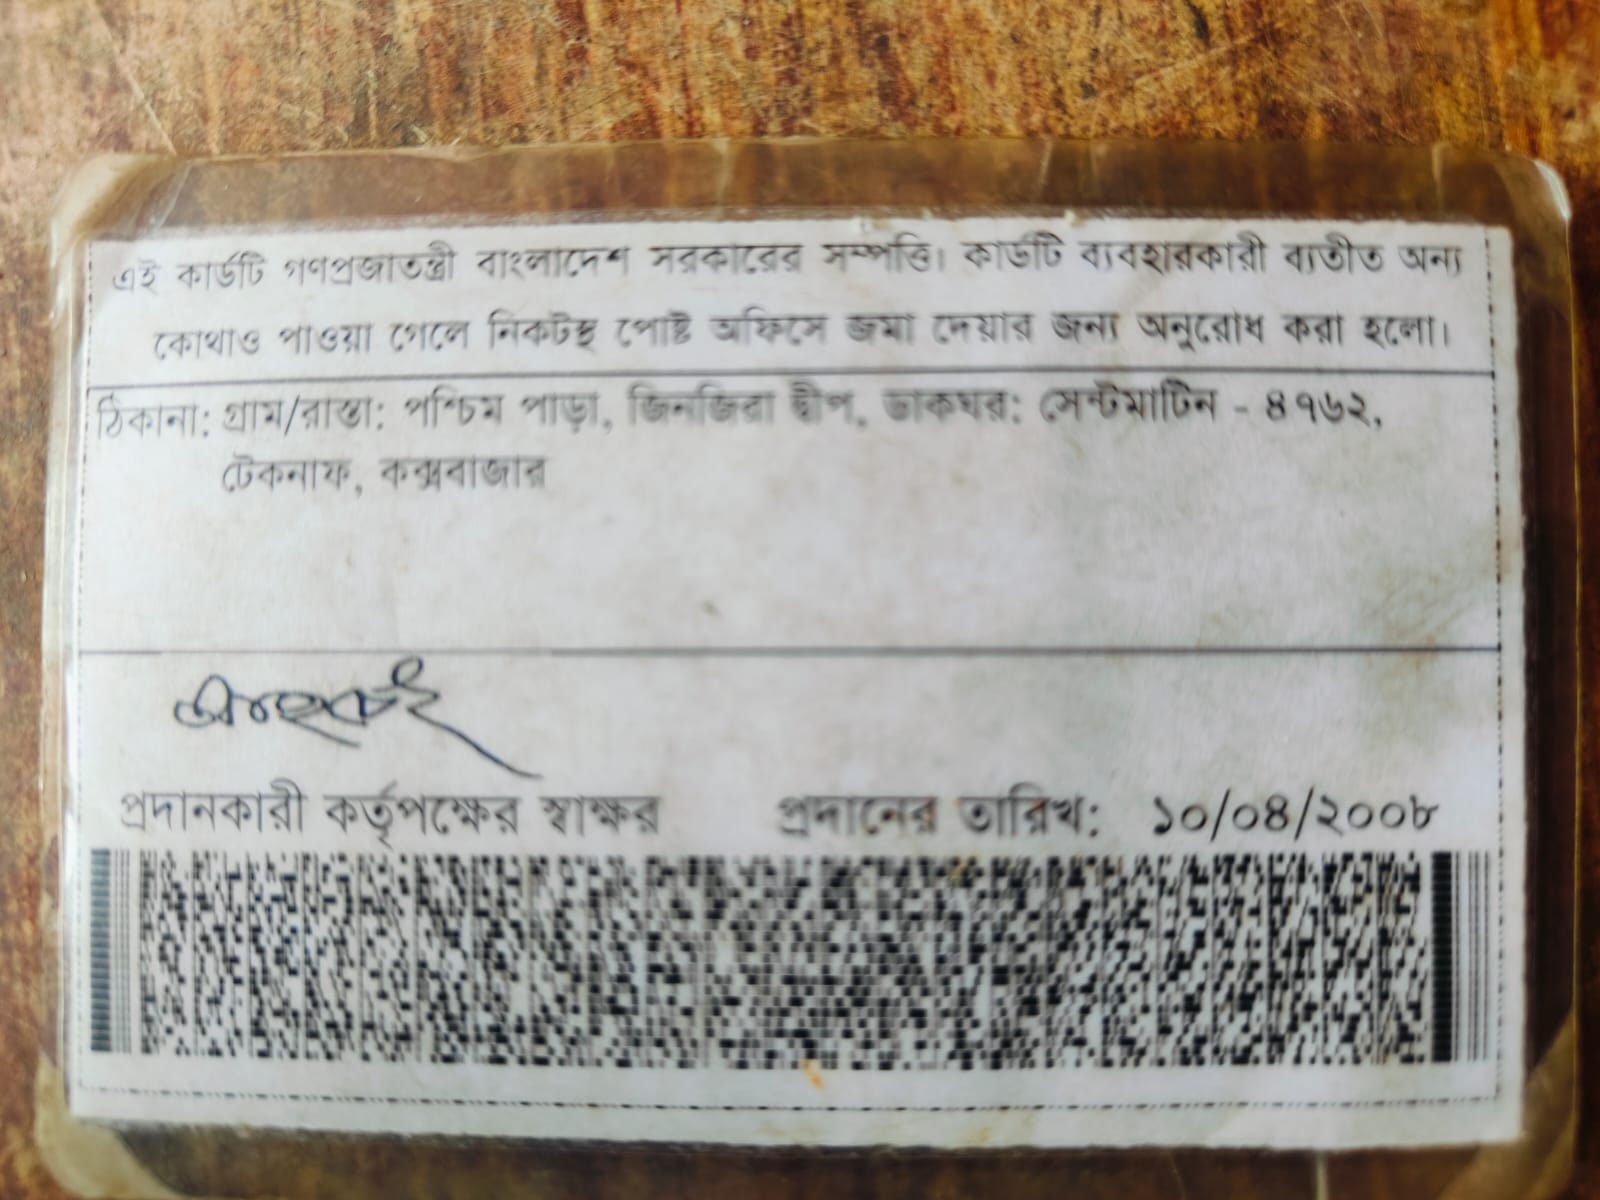 এই কার্ডটি গণপ্রজাতন্ত্রী বাংলাদেশ সরকারের সম্পত্তি। কার্ডটি ব্যবহারকারী ব্যতীত অন্য
কোথাও পাওয়া গেলে নিকটস্থ পোষ্ট অফিসে জমা দেয়ার জন্য অনুরোধ করা হলো।
ঠিকানা: গ্রাম/রাস্তা: পশ্চিম পাড়া, জিনজিরা দ্বীপ, ডাকঘর: সেন্টমার্টিন - ৪৭৬২,
টেকনাফ, কক্সবাজার
প্রদানকারী কর্তৃপক্ষের স্বাক্ষর প্রদানের তারিখ: ১০/০৪/২০০৮